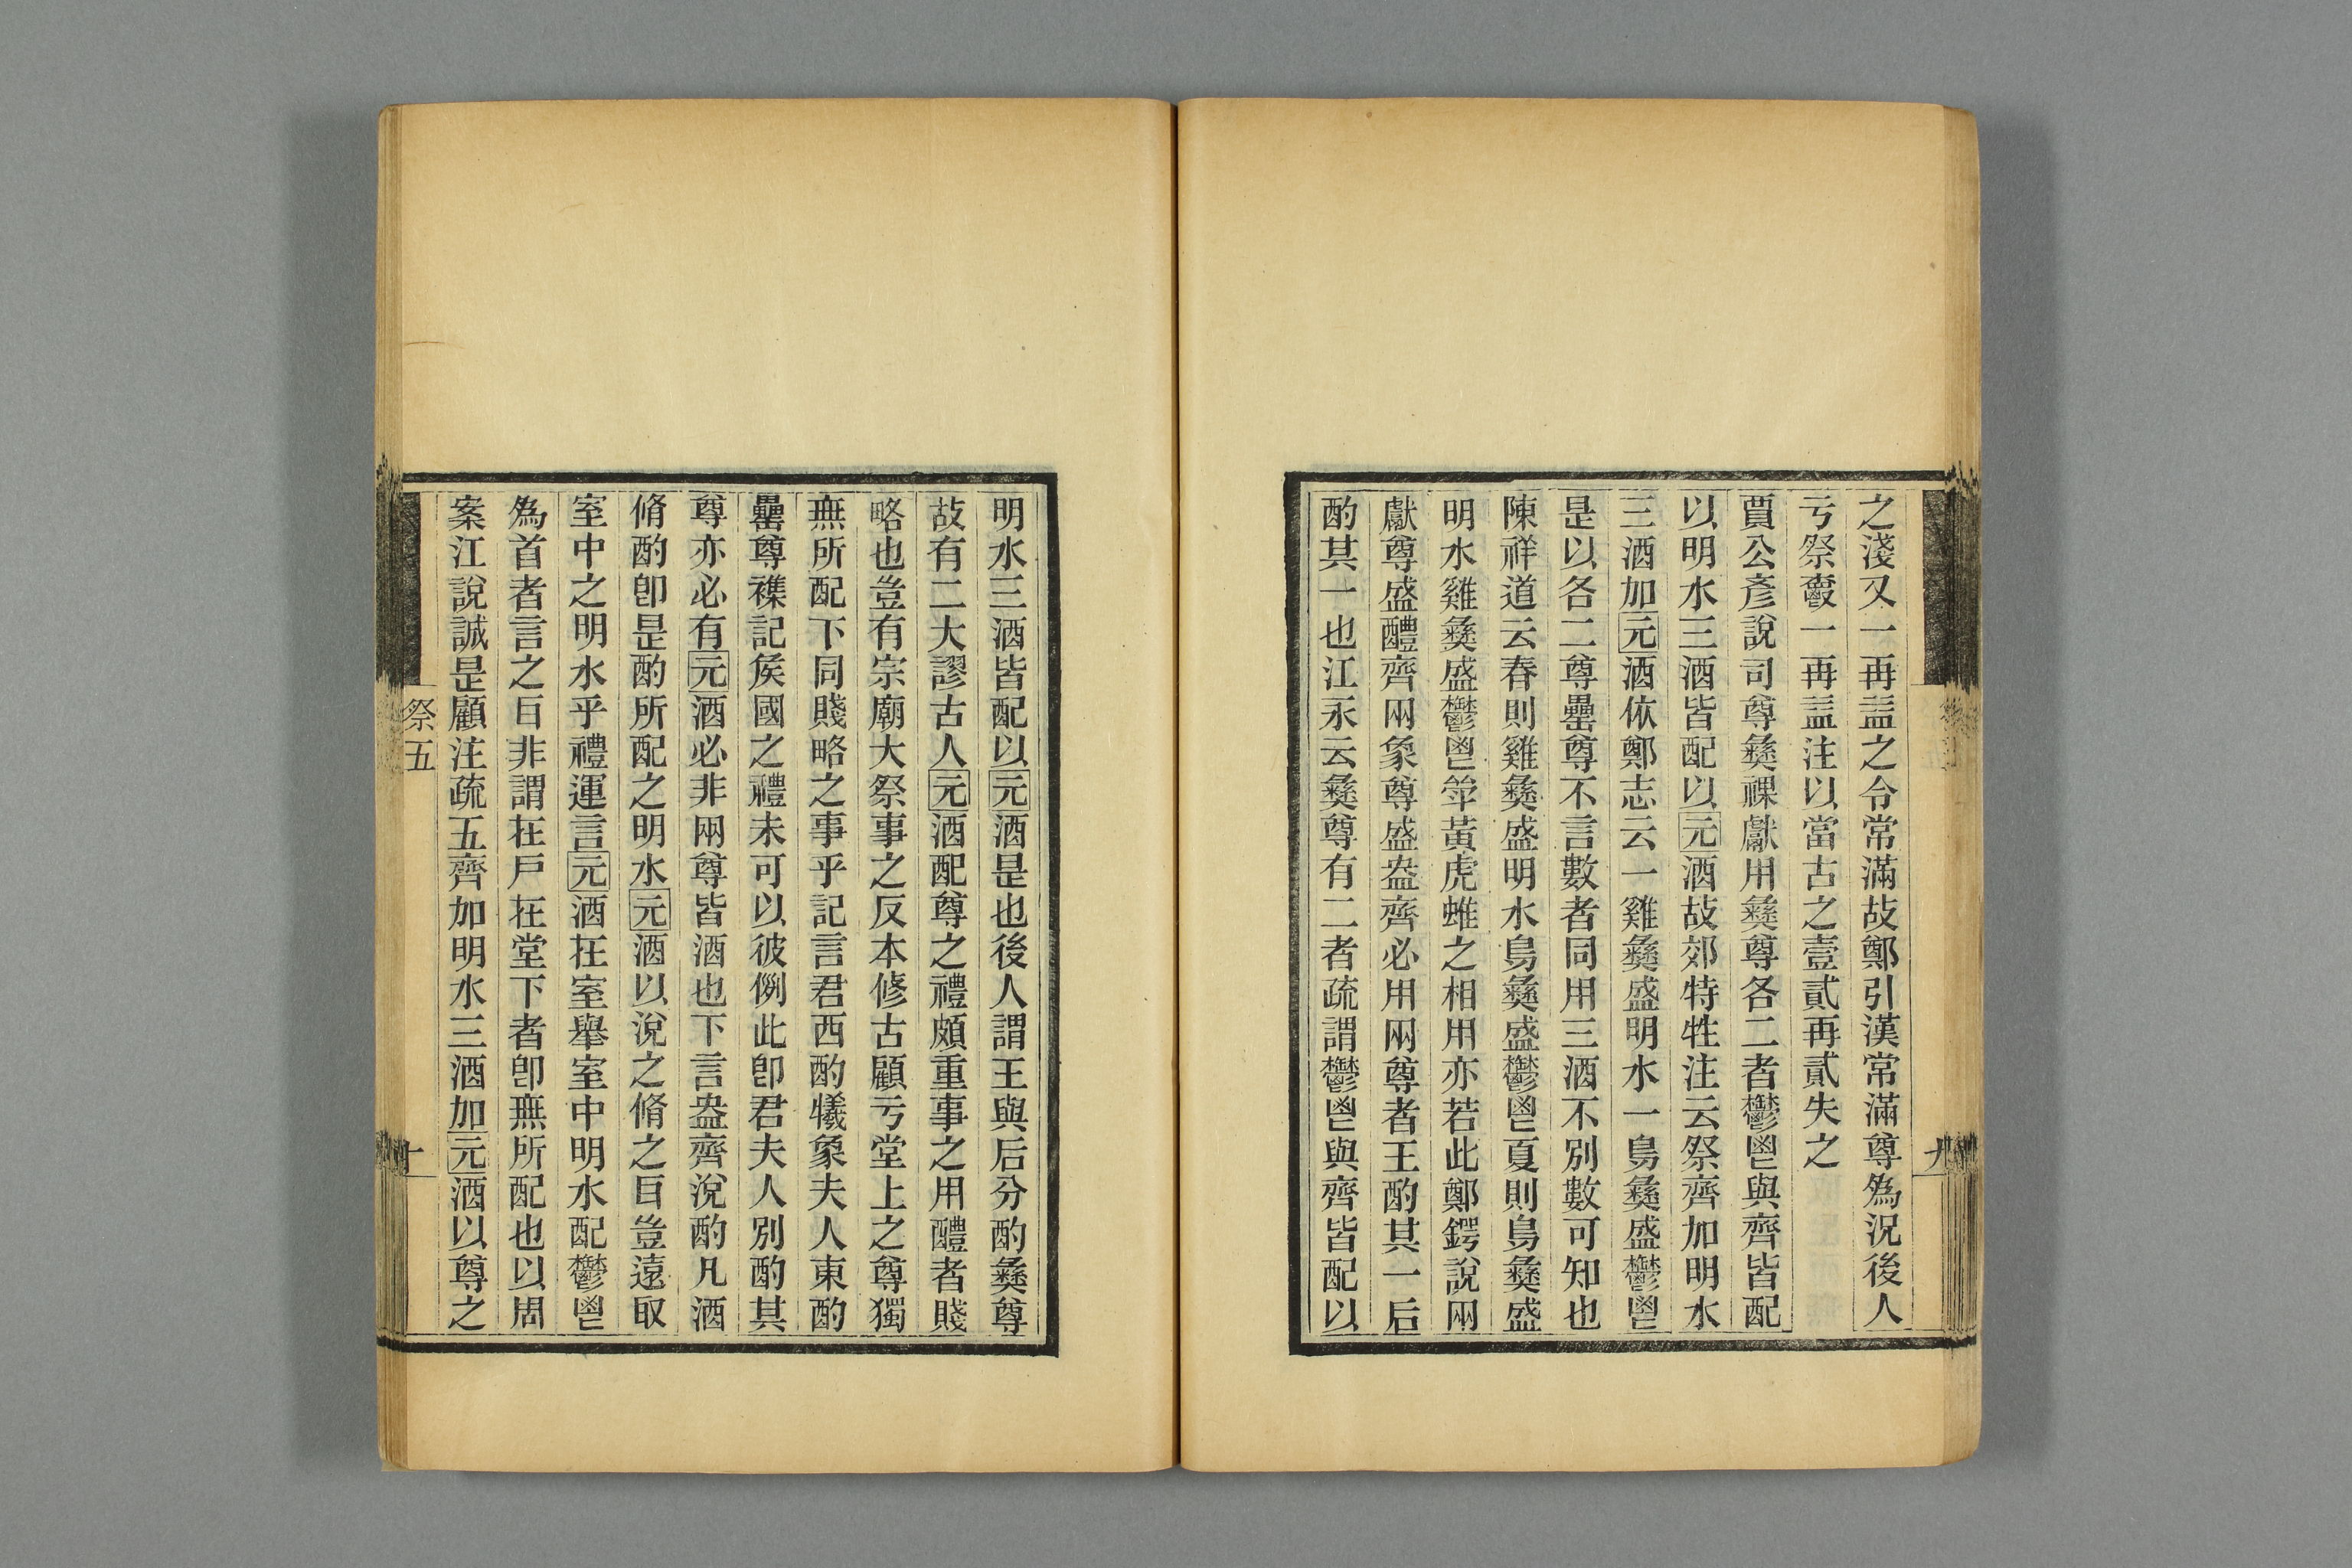 之淺又一再䀇之令常滿故鄭引漢常滿尊爲況後人
亏祭䕫一再䀇注以當古之壹貳再貳失之
賈公彥說司尊彝祼獻用彝尊各二者鬱鬯與齊皆配
以明水三酒皆配以元酒故郊特牲注云祭齊加明水
三酒加元酒依鄭志云一雞彝盛明水一鳥彝盛鬱鬯
是以各二尊罍尊不言數者同用三酒不別數可知也
陳祥道云春則雞彝盛明水鳥彝盛鬱鬯夏則鳥彝盛
明水雞彝盛鬱鬯斝黃虎蜼之相用亦若此鄭鍔說兩
獻尊盛醴齊兩象尊盛盎齊必用兩尊者王酌其一后
酌其一也江永云彝尊有二者疏謂鬱鬯與齊皆配以
九
明水三酒皆配以元酒是也後人謂王與后分酌彝尊
故有二大謬古人元酒配尊之禮頗重事之用醴者賤
略也豈有宗廟大祭事之反本修古顧亏堂上之尊獨
無所配下同賤略之事乎記言君西酌犧象夫人東酌
罍尊襍記侯國之禮未可以彼例此卽君夫人別酌其
尊亦必有元酒必非兩尊皆酒也下言盎齊涗酌凡酒
脩酌卽是酌所配之明水元酒以涗之脩之目豈遠取
室中之明水乎禮運言元酒在室舉室中明水配鬱鬯
爲首者言之目非謂在戶在堂下者卽無所配也以周
案江說誠是顧注疏五齊加明水三酒加元酒以尊之
祭五
十